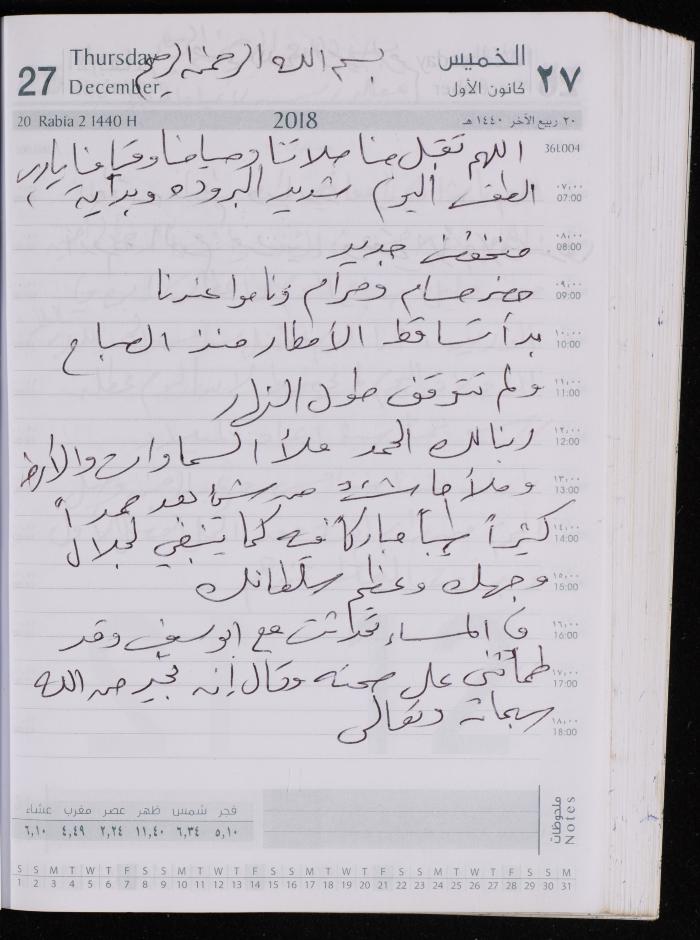 27 Thursday December
بسم الله الرحمن الرحيم
الخميس ٢٧
كانون الأول
20 Rabia 2 1440 H 2018 ٢٠ ربيع الآخر ١٤٤٠ هـ
36L004
اللهم تقبل منا صلاتنا وصيامنا وقيامنا يارب
٠٧,٠٠ 07:00
الطقس اليوم شديد البروده وبداية
٠٨,٠٠ 08:00
منخفض جديد
٠٩,٠٠ 09:00
حضر حسام ومرام وناموا عندنا
١٠,٠٠ 10:00
بدأ تساقط الأمطار منذ الصباح
١١,٠٠ 11:00
ولم تتوقف طول النهار
١٢,٠٠ 12:00
ربنا لك الحمد ملأ السماوات والأرض
١٣,٠٠ 13:00
وملأ ما شئت من شئ بعد حمداً
١٤,٠٠ 14:00
كثيراً طيباً مباركاً فيه كما ينبغي لجلال
١٥,٠٠ 15:00
وجهك وعظم سلطانك
١٦,٠٠ 16:00
في المساء تحدثت مع ابو سيف وقد
١٧,٠٠ 17:00
طمأنني على صحته وقال إنه بخير من الله
١٨,٠٠ 18:00
سبحانه وتعالى
فجر شمس ظهر عصر مغرب عشاء
٥,١٠ ٦,٣٤ ١١,٤٠ ٢,٢٤ ٤,٤٩ ٦,١٠
ملحوظات
Notes
S S M T W T F S S M T W T F S S M T W T F S S M T W T F S S M
1 2 3 4 5 6 7 8 9 10 11 12 13 14 15 16 17 18 19 20 21 22 23 24 25 26 27 28 29 30 31